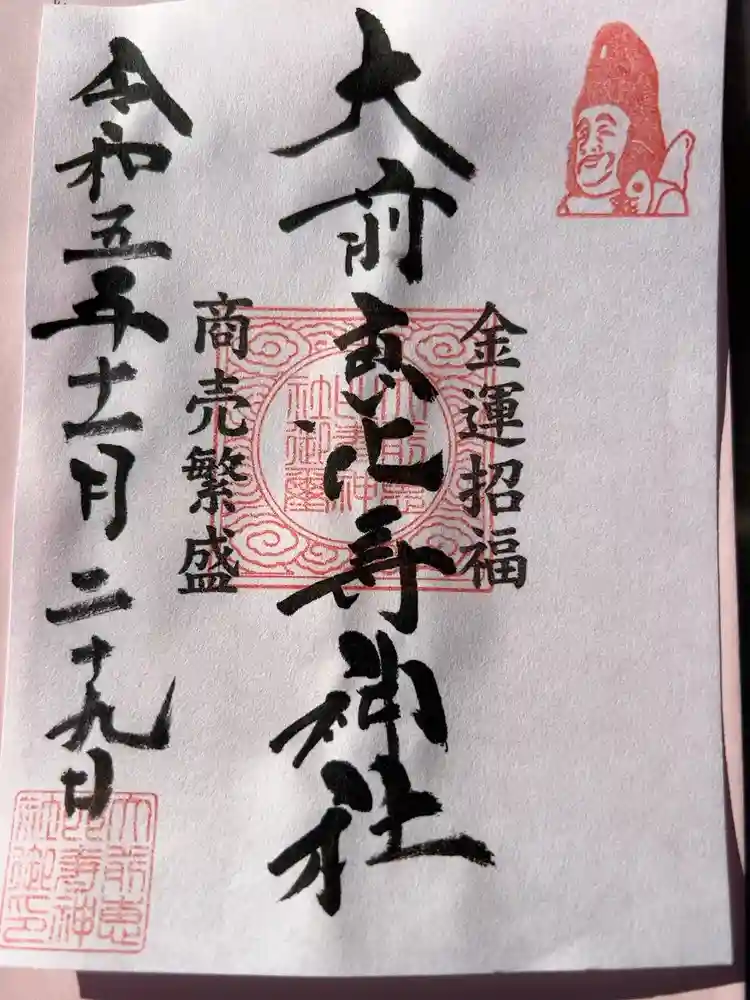 金運招福
大前恵比寿神社
商売繁盛
令和五年十一月二十九日
大前恵
比寿神
社御璽
大前恵
比寿神
社御印